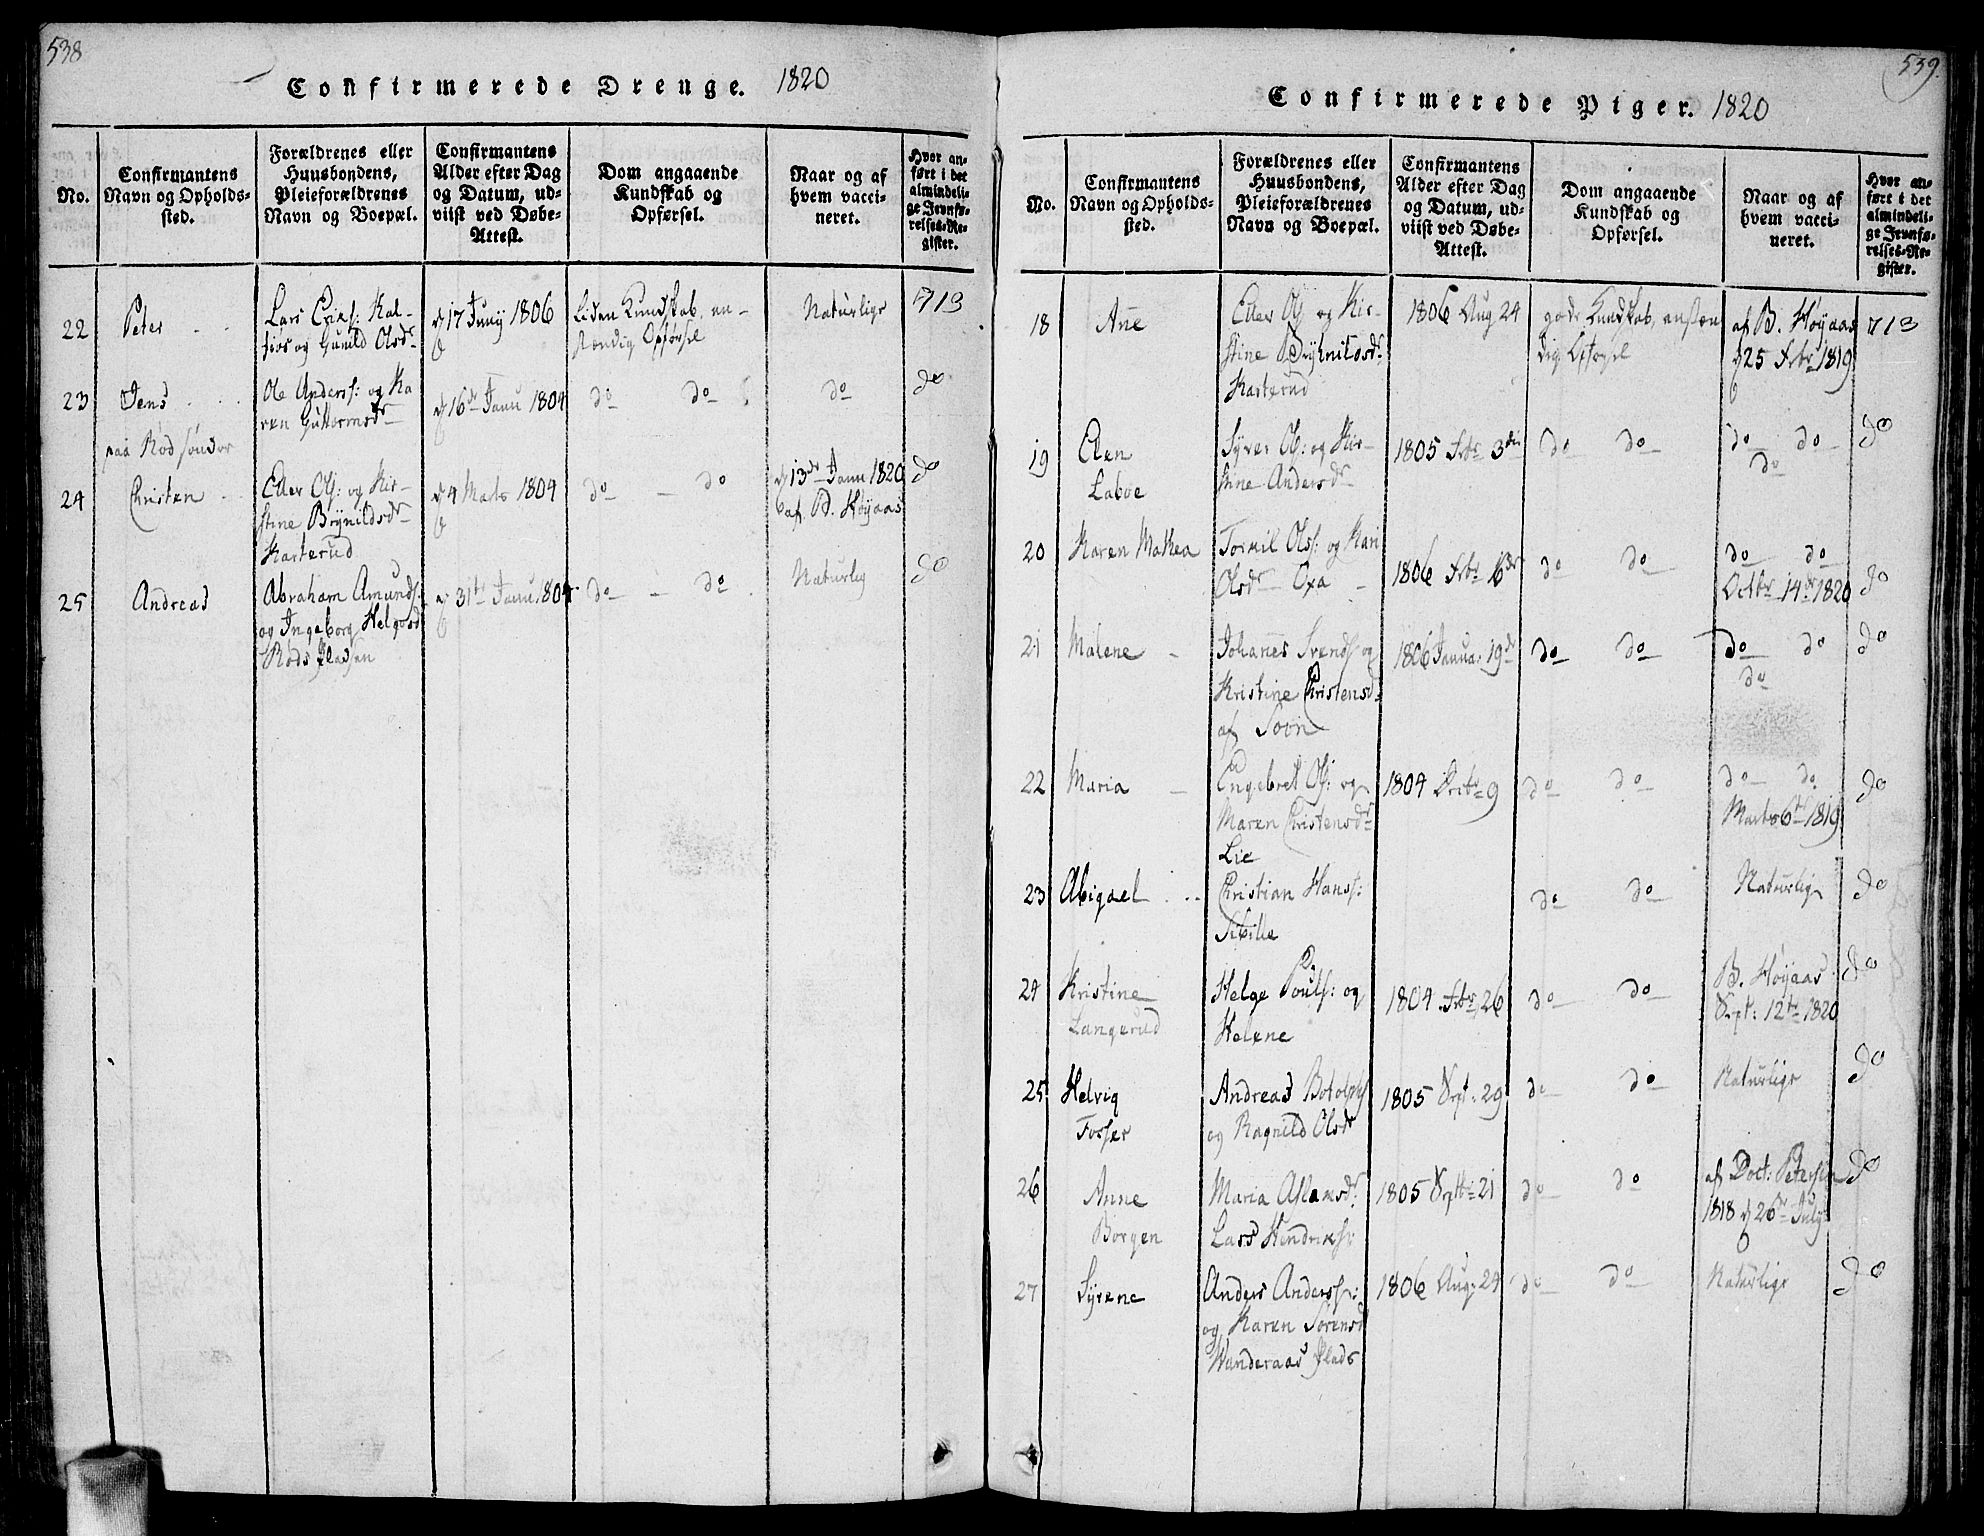 538
Confirmerede Drenge. 1820
No.
Confirmantens
Navn og Opholds-
sted.
Forældrenes eller
Huusbondens,
Pleieforældrenes
Navn og Boepæl.
Confirmantens
Alder efter Dag
og Datum, ud-
viist ved Døbe-
Attest.
Dom angaaende
Kundskab og
Opførsel.
Naar og af
hvem vacci-
neret.
Hvor an-
ført i det
almindeli-
ge Jevnfø-
relses-Re-
gister.
22
Peter
Lars
og Gunild Olsdr
17 Juny 1806
Liden Kundskab, an-
stændig Opførsel
Naturlige
713
23
Jens
paa Rød søndor
Ole Anderss: og Ka
ren Guttormsdr
16de Janu 1804
do do
do
do
24
Christen
Eller Ols: og Kir-
stine Brynildsdr
Karterud
4 Marts 1804
do - do
13de Janu 1820
af B. Høyaas
do
25
Andreas
Abraham Amunds:
og Ingeborg Helgesd
Røds Pladsen
31te Janu. 1804
do - do
Naturlig
do
539.
Confirmerede Piger. 1820
No.
Confirmantens
Navn og Opholds-
sted.
Forældrenes eller
Huusbondens,
Pleieforældrenes
Navn og Boepæl.
Confirmantens
Alder efter Dag
og Datum, ud-
viist ved Døbe-
Attest.
Dom angaaende
Kundskab og
Opførsel.
Naar og af
hvem vacci-
neret.
Hvor an-
ført i det
almindeli-
ge Jevnfø-
relses-Re-
gister.
18
Ane
Eller Ols og Kir-
stine Brynildsdr
Karterud
1806 Aug 24
gode Kundskab, anstæn
dig Opførsel
af B. Høyaas
25 Febr 1819
713
19
Elen
Laboe
Syver Ols: og Kir-
stine Andersdr
1805 Febr 3die
do do
do do
do
do
20
Karen Mathea
Tormil Olss: og Kari
Olsdr Oxa
1806 Febr 16de
do do
do do
Octbr 14de 1820
do
21
Malene
Johanes Svends og
Kristine Christensd
af Soon
1806 Janua: 19de
do do
do do
do
do
22
Maria
Engebret Ols: og
Maren Christensdr
Lie
1804 Octbr 9
do do
do do
Marts 6te 1819
do
23
Abigael
Christian Hanss:
Sibille
do do
Naturlig
do
24
Kristine
Langerud
Helge Pouls: og
Helene
1804 Febr 26
do do
B. Høyaas
Sept: 12te 1820
do
25
Helvig
Fosser
Andreas Botolphs
og Ragnild Olsdr
1805 Sept: 29
do do
Naturlige
do
26
Anne
Borgen
Maria Aslansdr
Lars Hendriks:
1805 Septbr 21
do do
af Doct: Petersen
1818 26de July
do
27
Syrene
Anders Anderss:
og Karen Sørensd
Wanderaas Plads
1806 Aug: 24
do do
Naturlige
do